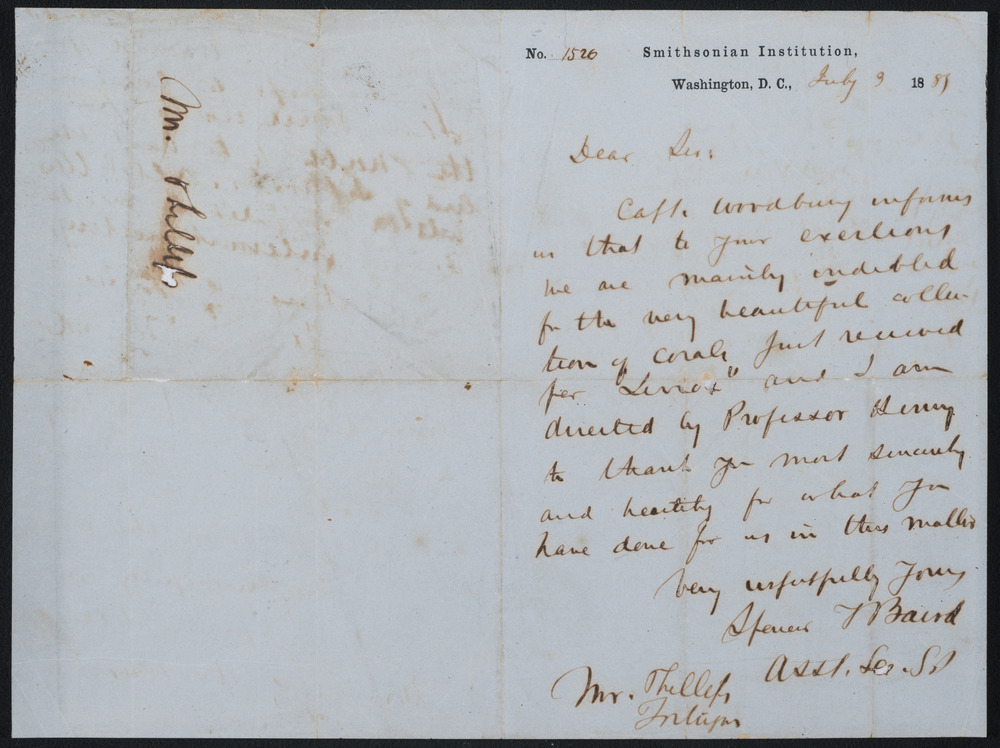 Mr. Phillips
No. 1526 Smithsonian Institution,
Washington, D. C., July 9 18
Dear Sir:
Capt. Woodbury informs
us that to your exertions
we are mainly indebted
for the very beautiful collec-
tion of corals just received
per and I am
directed by Professor Henry
to thank you most sincerely
and heartily for what you
have done for us in this matter
Very respectfully Yours
Spencer F Baird
Asst. Sec. S I
Mr. Phillips
Tortugas